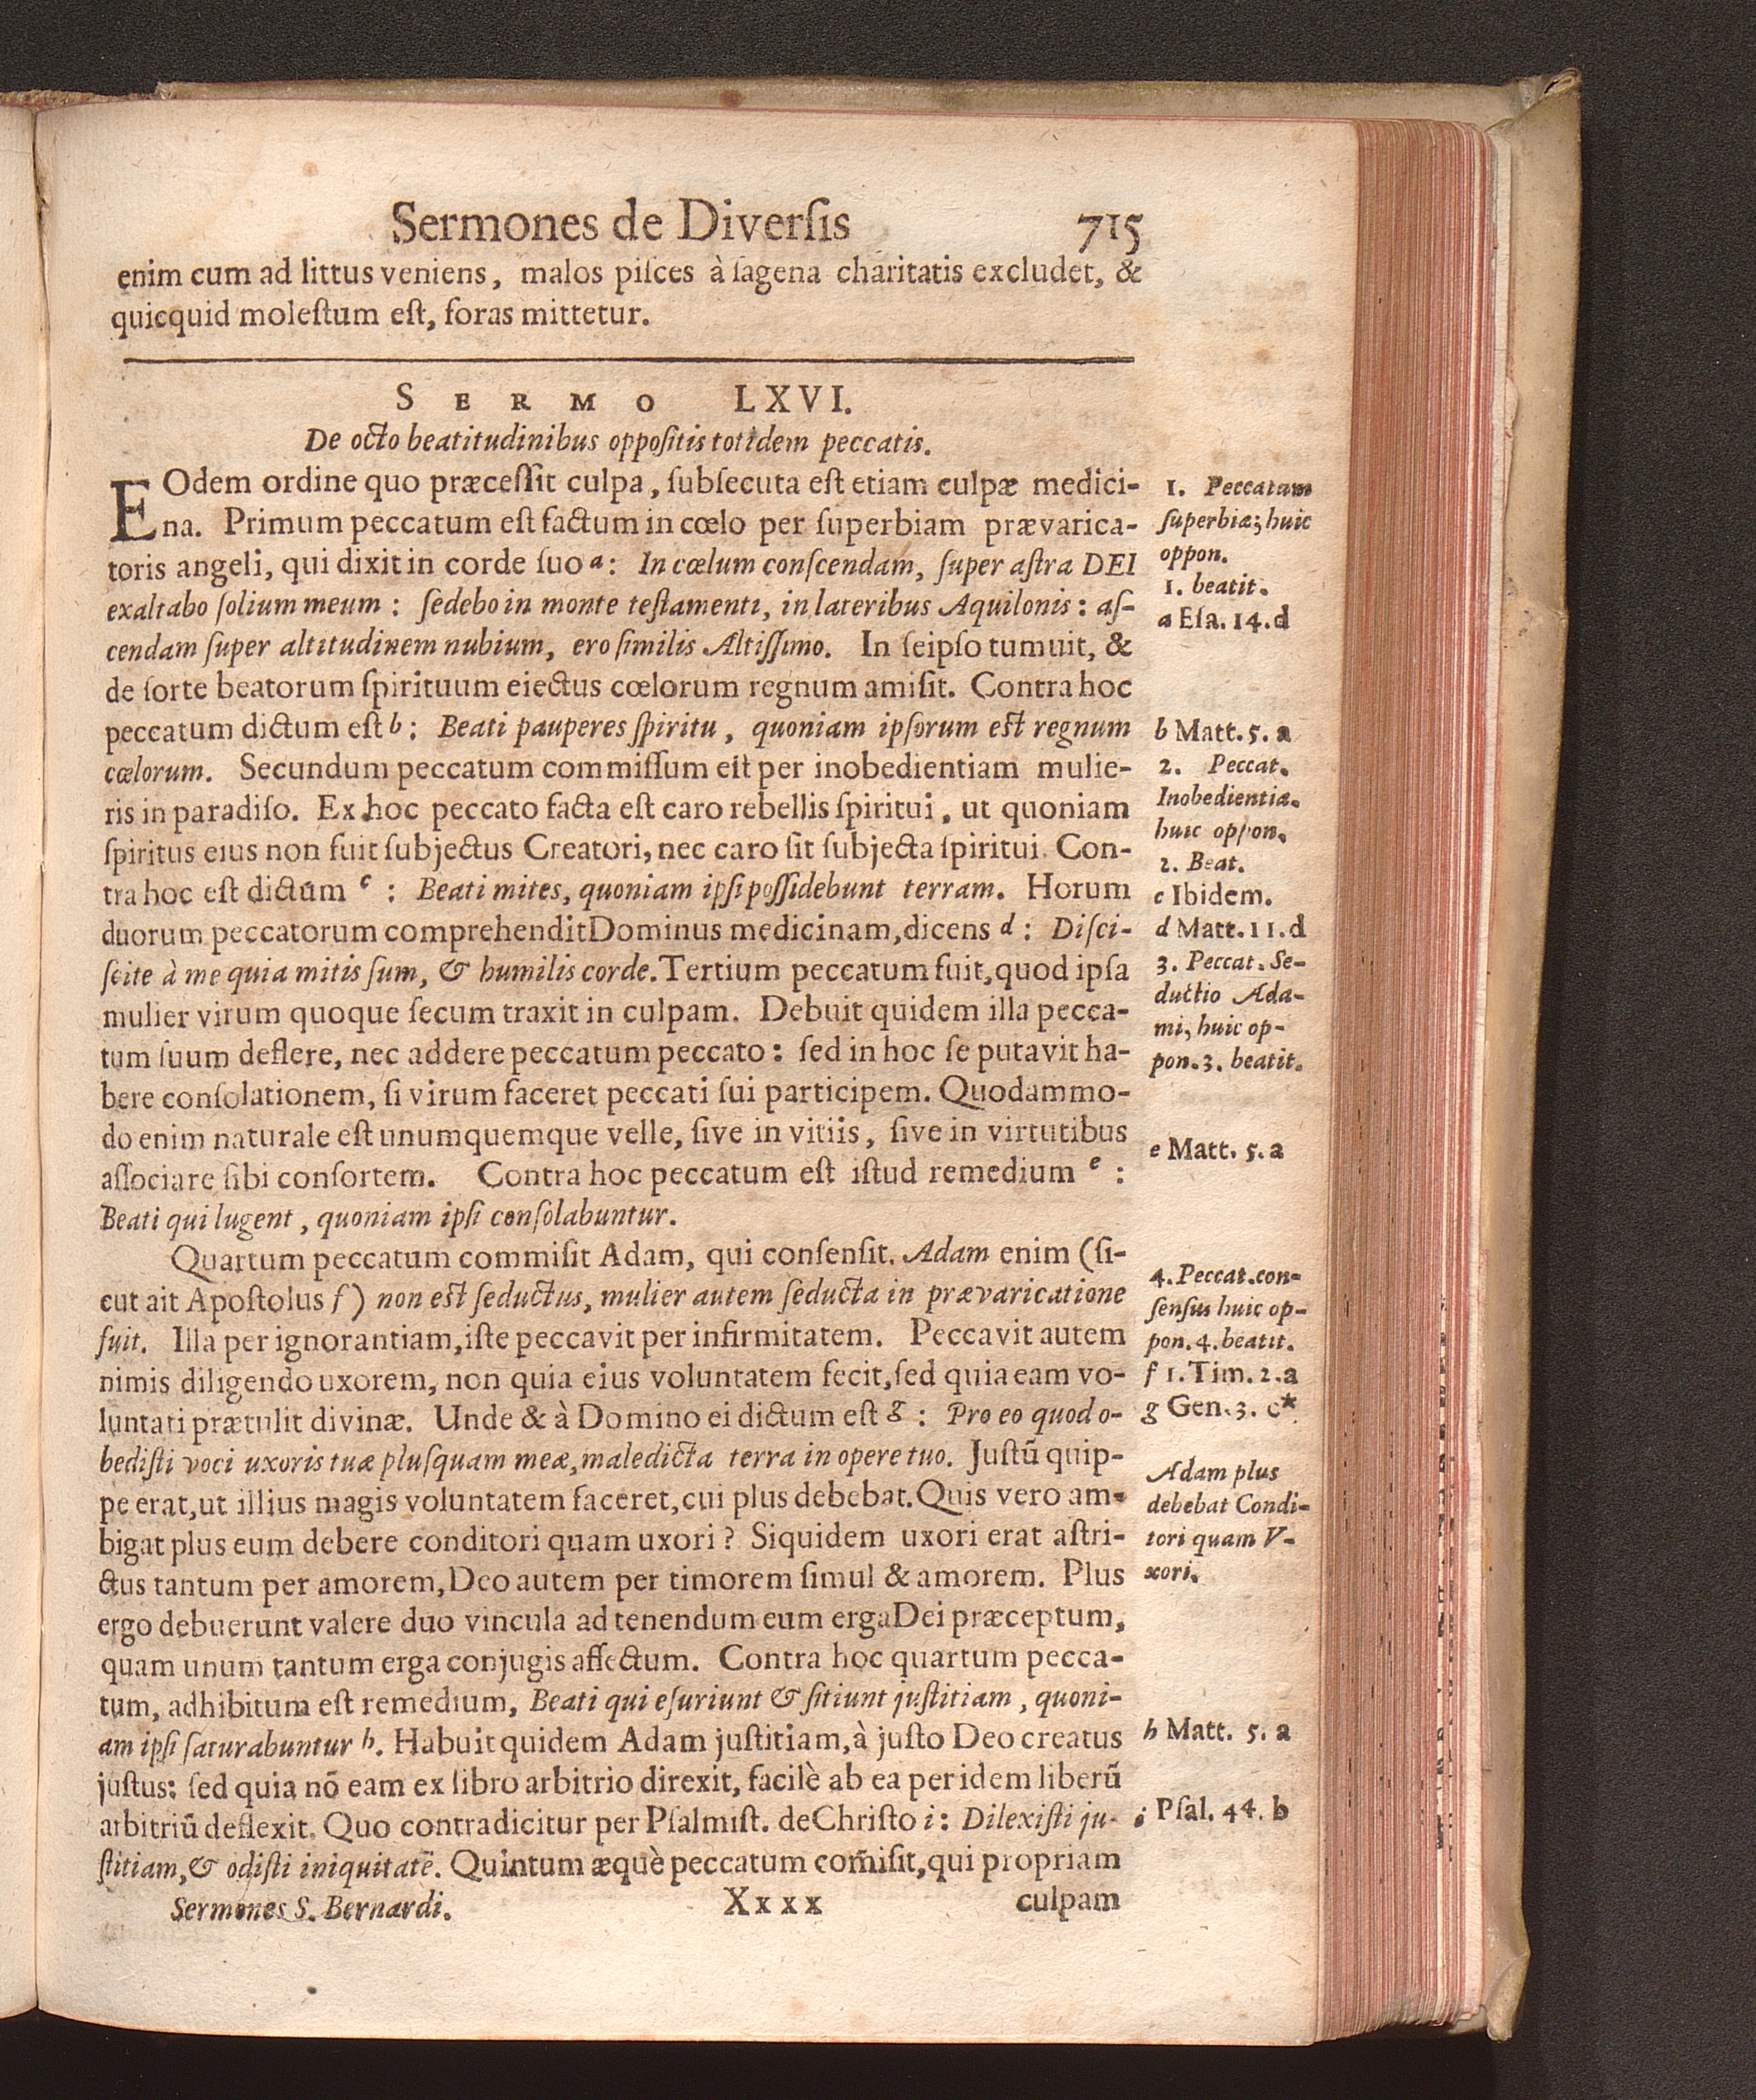 Sermones de Diverſis 715
enim cum ad littus veniens, malos piſces à ſagena charitatis excludet, &
quicquid moleſtum eſt, foras mittetur.
SERMO LXVI.
De octo beatitudinibus oppoſitis totidem peccatis.
EOdem ordine quo præceſſit culpa, ſubſecuta eſt etiam culpæ medici-
na. Primum peccatum eſt factum in cœlo per ſuperbiam prævarica-
toris angeli, qui dixit in corde ſuo a: In cœlum conſcendam, ſuper aſtra DEI
exaltabo ſolium meum: ſedebo in monte teſtamenti, in lateribus Aquilonis: aſ-
cendam ſuper altitudinem nubium, ero ſimilis Altiſſimo. In ſeipſo tumuit, &
de ſorte beatorum ſpirituum eiectus cœlorum regnum amiſit. Contra hoc
peccatum dictum eſt b: Beati pauperes ſpiritu, quoniam ipſorum eſt regnum
cœlorum. Secundum peccatum commiſſum eſt per inobedientiam mulie-
ris in paradiſo. Ex hoc peccato facta eſt caro rebellis ſpiritui, ut quoniam
ſpiritus eius non fuit ſubjectus Creatori, nec caro ſit ſubjecta ſpiritui. Con-
tra hoc eſt dictum c: Beati mites, quoniam ipſi poſſidebunt terram. Horum
duorum peccatorum comprehendit Dominus medicinam, dicens d: Diſci-
ſcite à me quia mitis ſum, & humilis corde. Tertium peccatum fuit, quod ipſa
mulier virum quoque ſecum traxit in culpam. Debuit quidem illa pecca-
tum ſuum deflere, nec addere peccatum peccato: ſed in hoc ſe putavit ha-
bere conſolationem, ſi virum faceret peccati ſui participem. Quodammo-
do enim naturale eſt unumquemque velle, ſive in vitiis, ſive in virtutibus
aſſociare ſibi conſortem. Contra hoc peccatum eſt iſtud remedium e:
Beati qui lugent, quoniam ipſi conſolabuntur.
Quartum peccatum commiſit Adam, qui conſenſit. Adam enim (ſi-
cut ait Apoſtolus f) non eſt ſeductus, mulier autem ſeducta in prævaricatione
fuit. Illa per ignorantiam, iſte peccavit per infirmitatem. Peccavit autem
nimis diligendo uxorem, non quia eius voluntatem fecit, ſed quia eam vo-
luntati prætulit divinæ. Unde & à Domino ei dictum eſt g: Pro eo quod o-
bediſti voci uxoris tuæ pluſquam meæ, maledicta terra in opere tuo. Juſtū quip-
pe erat, ut illius magis voluntatem faceret, cui plus debebat. Quis vero am-
bigat plus eum debere conditori quam uxori? Siquidem uxori erat aſtri-
ctus tantum per amorem, Deo autem per timorem ſimul & amorem. Plus
ergo debuerunt valere duo vincula ad tenendum eum erga Dei præceptum,
quam unum tantum erga conjugis affectum. Contra hoc quartum pecca-
tum, adhibitum eſt remedium, Beati qui eſuriunt & ſitiunt juſtitiam, quoni-
am ipſi ſaturabuntur h. Habuit quidem Adam juſtitiam, à juſto Deo creatus
juſtus: ſed quia nō eam ex libro arbitrio direxit, facilè ab ea per idem liberū
arbitriū deflexit. Quo contradicitur per Pſalmiſt. de Chriſto i: Dilexiſti ju-
ſtitiam, & odiſti iniquitatē. Quintum æquè peccatum com̄iſit, qui propriam
Sermones S. Bernardi. Xxxx culpam
1. Peccatum
ſuperbiæ; huic
oppon.
1. beatit.
a Eſa. 14. d
b Matt. 5. a
2. Peccat.
Inobedientiæ.
huic oppon.
2. Beat.
c Ibidem.
d Matt. 11. d
3. Peccat. Se-
ductio Ada-
mi, huic op-
pon. 3. beatit.
e Matt. 5. a
4. Peccat. con-
ſenſus huic op-
pon. 4. beatit.
f 1. Tim. 2. a
g Gen. 3. c*
Adam plus
debebat Condi-
tori quam V-
xori.
h Matt. 5. a
i Pſal. 44. b